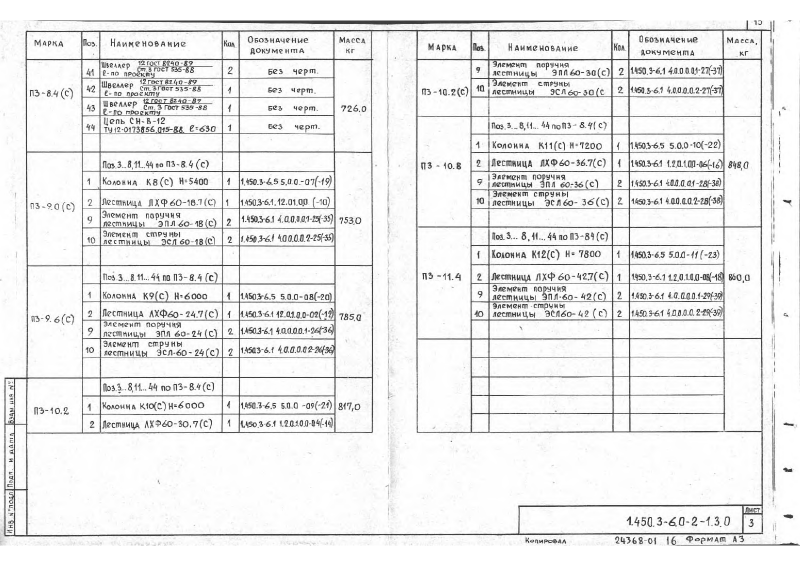 Марка Поз. Наименование Кол. Обозначение документа Масса кг
ПЗ-8.4(С) 726,0
41 Швеллер 12 ГОСТ 8240-89 / Ст.3 ГОСТ 535-88 ℓ-по проекту 2 Без черт.
42 Швеллер 12 ГОСТ 8240-89 / Ст.3 ГОСТ 535-88 ℓ-по проекту 1 Без черт.
43 Швеллер 12 ГОСТ 8240-89 / Ст.3 ГОСТ 535-88 ℓ-по проекту 1 Без черт.
44 Цепь СН-8-12 ТУ 12-0173856.015-88 ℓ=630 1 Без черт.
ПЗ-9.0(С) 753,0
Поз.3...8,11...44 по ПЗ-8.4(С)
1 Колонна К8(С) Н=5400 1 1.450.3-6.5 5.0.0-07(-19)
2 Лестница ЛХФ60-18.7(С) 1 1.450.3-6.1, 1.2.0.1.0.0 (-10)
9 Элемент поручня лестницы ЭПЛ 60-18(С) 2 1.450.3-6.1 4.0.0.0.0.1-25(-35)
10 Элемент струны лестницы ЭСЛ 60-18(С) 2 1.450.3-6.1 4.0.0.0.0.2-25(-35)
ПЗ-9.6(С) 785,0
Поз.3...8,11...44 по ПЗ-8.4(С)
1 Колонна К9(С) Н=6000 1 1.450.3-6.5 5.0.0-08(-20)
2 Лестница ЛХФ60-24.7(С) 1 1.450.3-6.1 1.2.0.1.0.0-02(-12)
9 Элемент поручня лестницы ЭПЛ 60-24(С) 2 1.450.3-6.1 4.0.0.0.0.1-26(-36)
10 Элемент струны лестницы ЭСЛ-60-24(С) 2 1.450.3-6.1 4.0.0.0.0.2-26(-36)
ПЗ-10.2 817,0
Поз.3...8,11...44 по ПЗ-8.4(С)
1 Колонна К10(С) Н=6000 1 1.450.3-6.5 5.0.0-09(-21)
2 Лестница ЛХФ60-30.7(С) 1 1.450.3-6.1 1.2.0.1.0.0-04(-14)
Марка Поз. Наименование Кол. Обозначение документа Масса, кг
ПЗ-10.2(С)
9 Элемент поручня лестницы ЭПЛ 60-30(С) 2 1.450.3-6.1 4.0.0.0.0.1-27(-37)
10 Элемент струны лестницы ЭСЛ 60-30(С 2 1.450.3-6.1 4.0.0.0.0.2-27(-37)
ПЗ-10.8 848,0
Поз.3...8,11...44 по ПЗ-8.4(С)
1 Колонна К11(С) Н=7200 1 1.450.3-6.5 5.0.0-10(-22)
2 Лестница ЛХФ60-36.7(С) 1 1.450.3-6.1 1.2.0.1.0.0-06(-16)
9 Элемент поручня лестницы ЭПЛ 60-36(С) 2 1.450.3-6.1 4.0.0.0.0.1-28(-38)
10 Элемент струны лестницы ЭСЛ 60-36(С) 2 1.450.3-6.1 4.0.0.0.0.2-28(-38)
ПЗ-11.4 860,0
Поз.3...8,11...44 по ПЗ-84(С)
1 Колонна К12(С) Н=7800 1 1.450.3-6.5 5.0.0-11(-23)
2 Лестница ЛХФ 60-42.7(С) 1 1.450.3-6.1 1.2.0.1.0.0-08(-18)
9 Элемент поручня лестницы ЭПЛ-60-42(С) 2 1.450.3-6.1 4.0.0.0.0.1-29(-39)
10 Элемент струны лестницы ЭСЛ60-42(С) 2 1.450.3-6.1 4.0.0.0.0.2-29(-39)
Инв. № подл. Подп. и дата Взам. инв. №
1.450.3-6.0-2-1.3.0
Лист 3
Копировал 24368-01 16 Формат А3